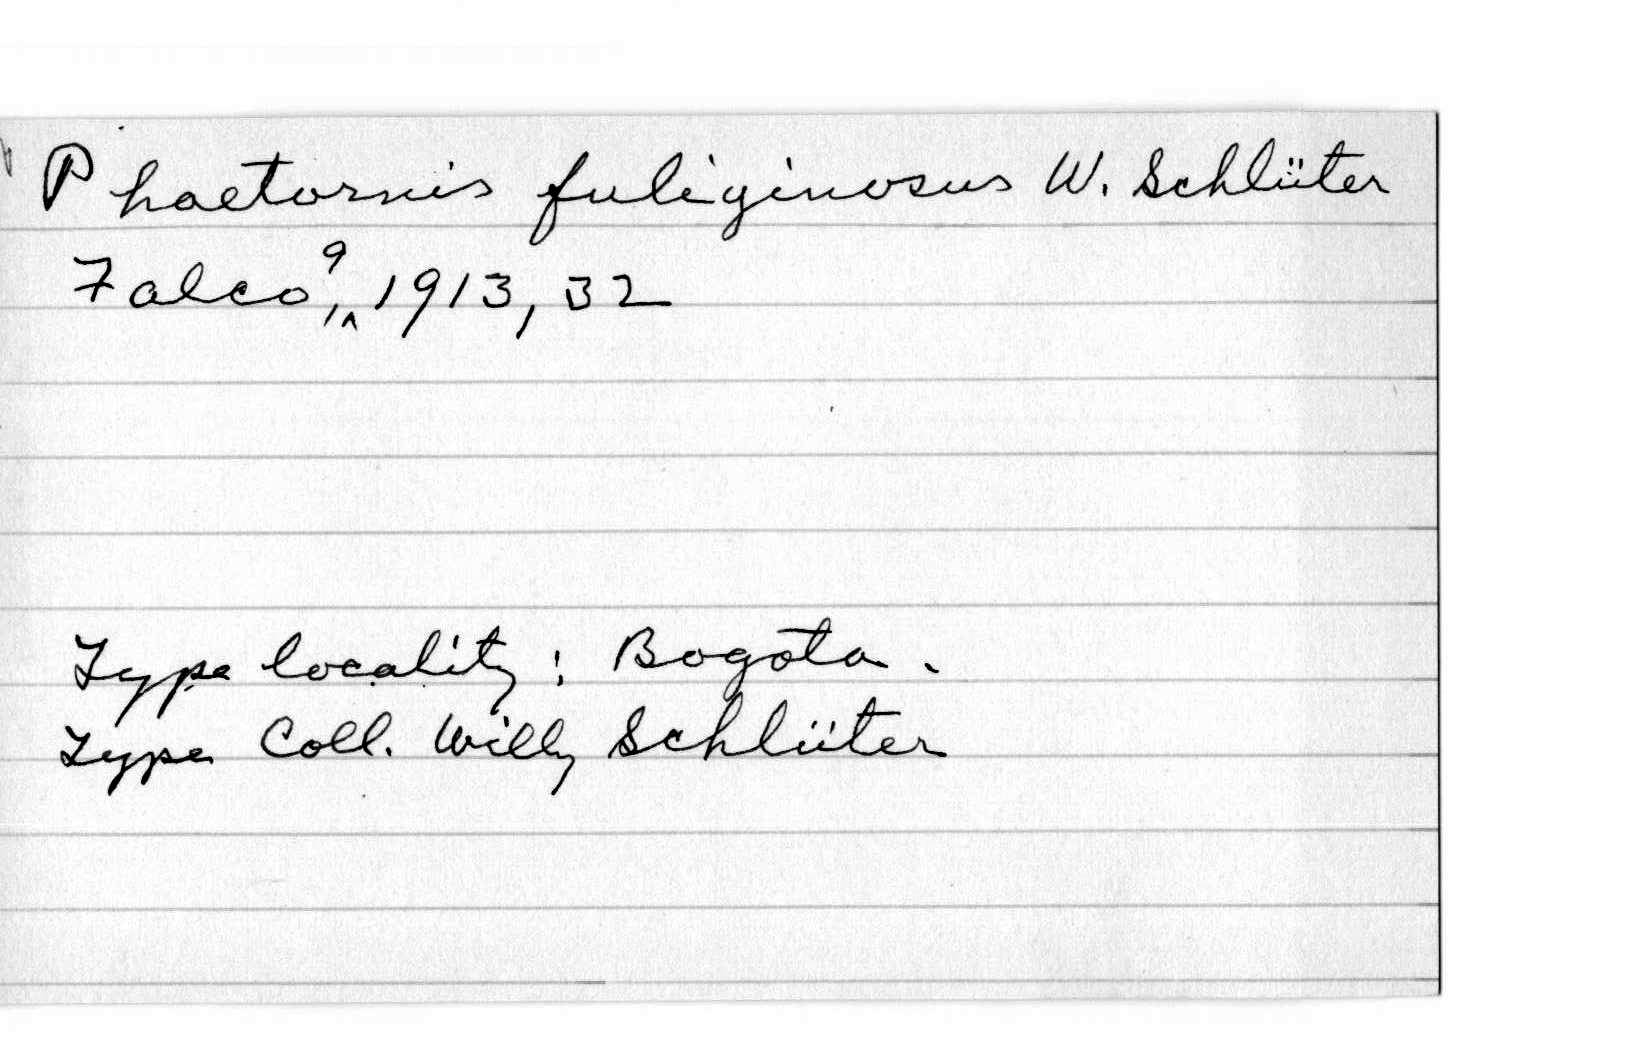 Phaetornis fuliginosus W. Schlüter
Falco, 9 1913, 32
Type locality: Bogota.
Type Coll. Willy Schlüter